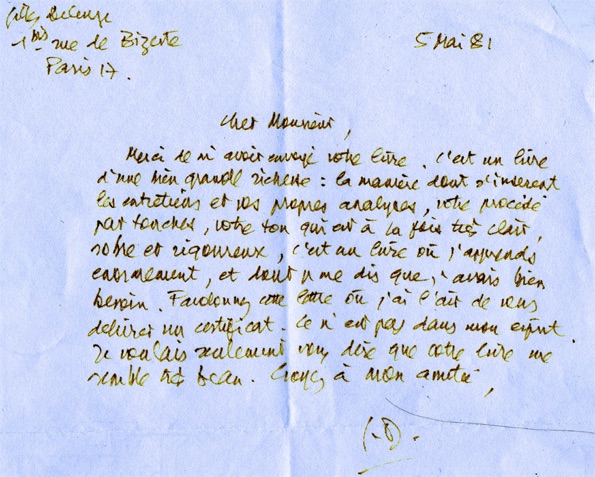 Gilles Deleuze
1 bis rue de Bizerte
Paris 17.
5 Mai 81
Cher Monsieur,
Merci de m'avoir envoyé votre livre. C'est un livre
d'une bien grande richesse : la manière dont s'insèrent
les entretiens et vos propres analyses, votre procédé
par touches, votre ton qui est à la fois très clair,
sobre et rigoureux, c'est un livre où j'apprends
énormément, et dont je me dis que j'avais bien
besoin. Pardonnez cette lettre où j'ai l'air de vous
délivrer un certificat. Ce n'est pas dans mon esprit.
Je voulais seulement vous dire que votre livre me
semble très beau. Croyez à mon amitié,
G.D.